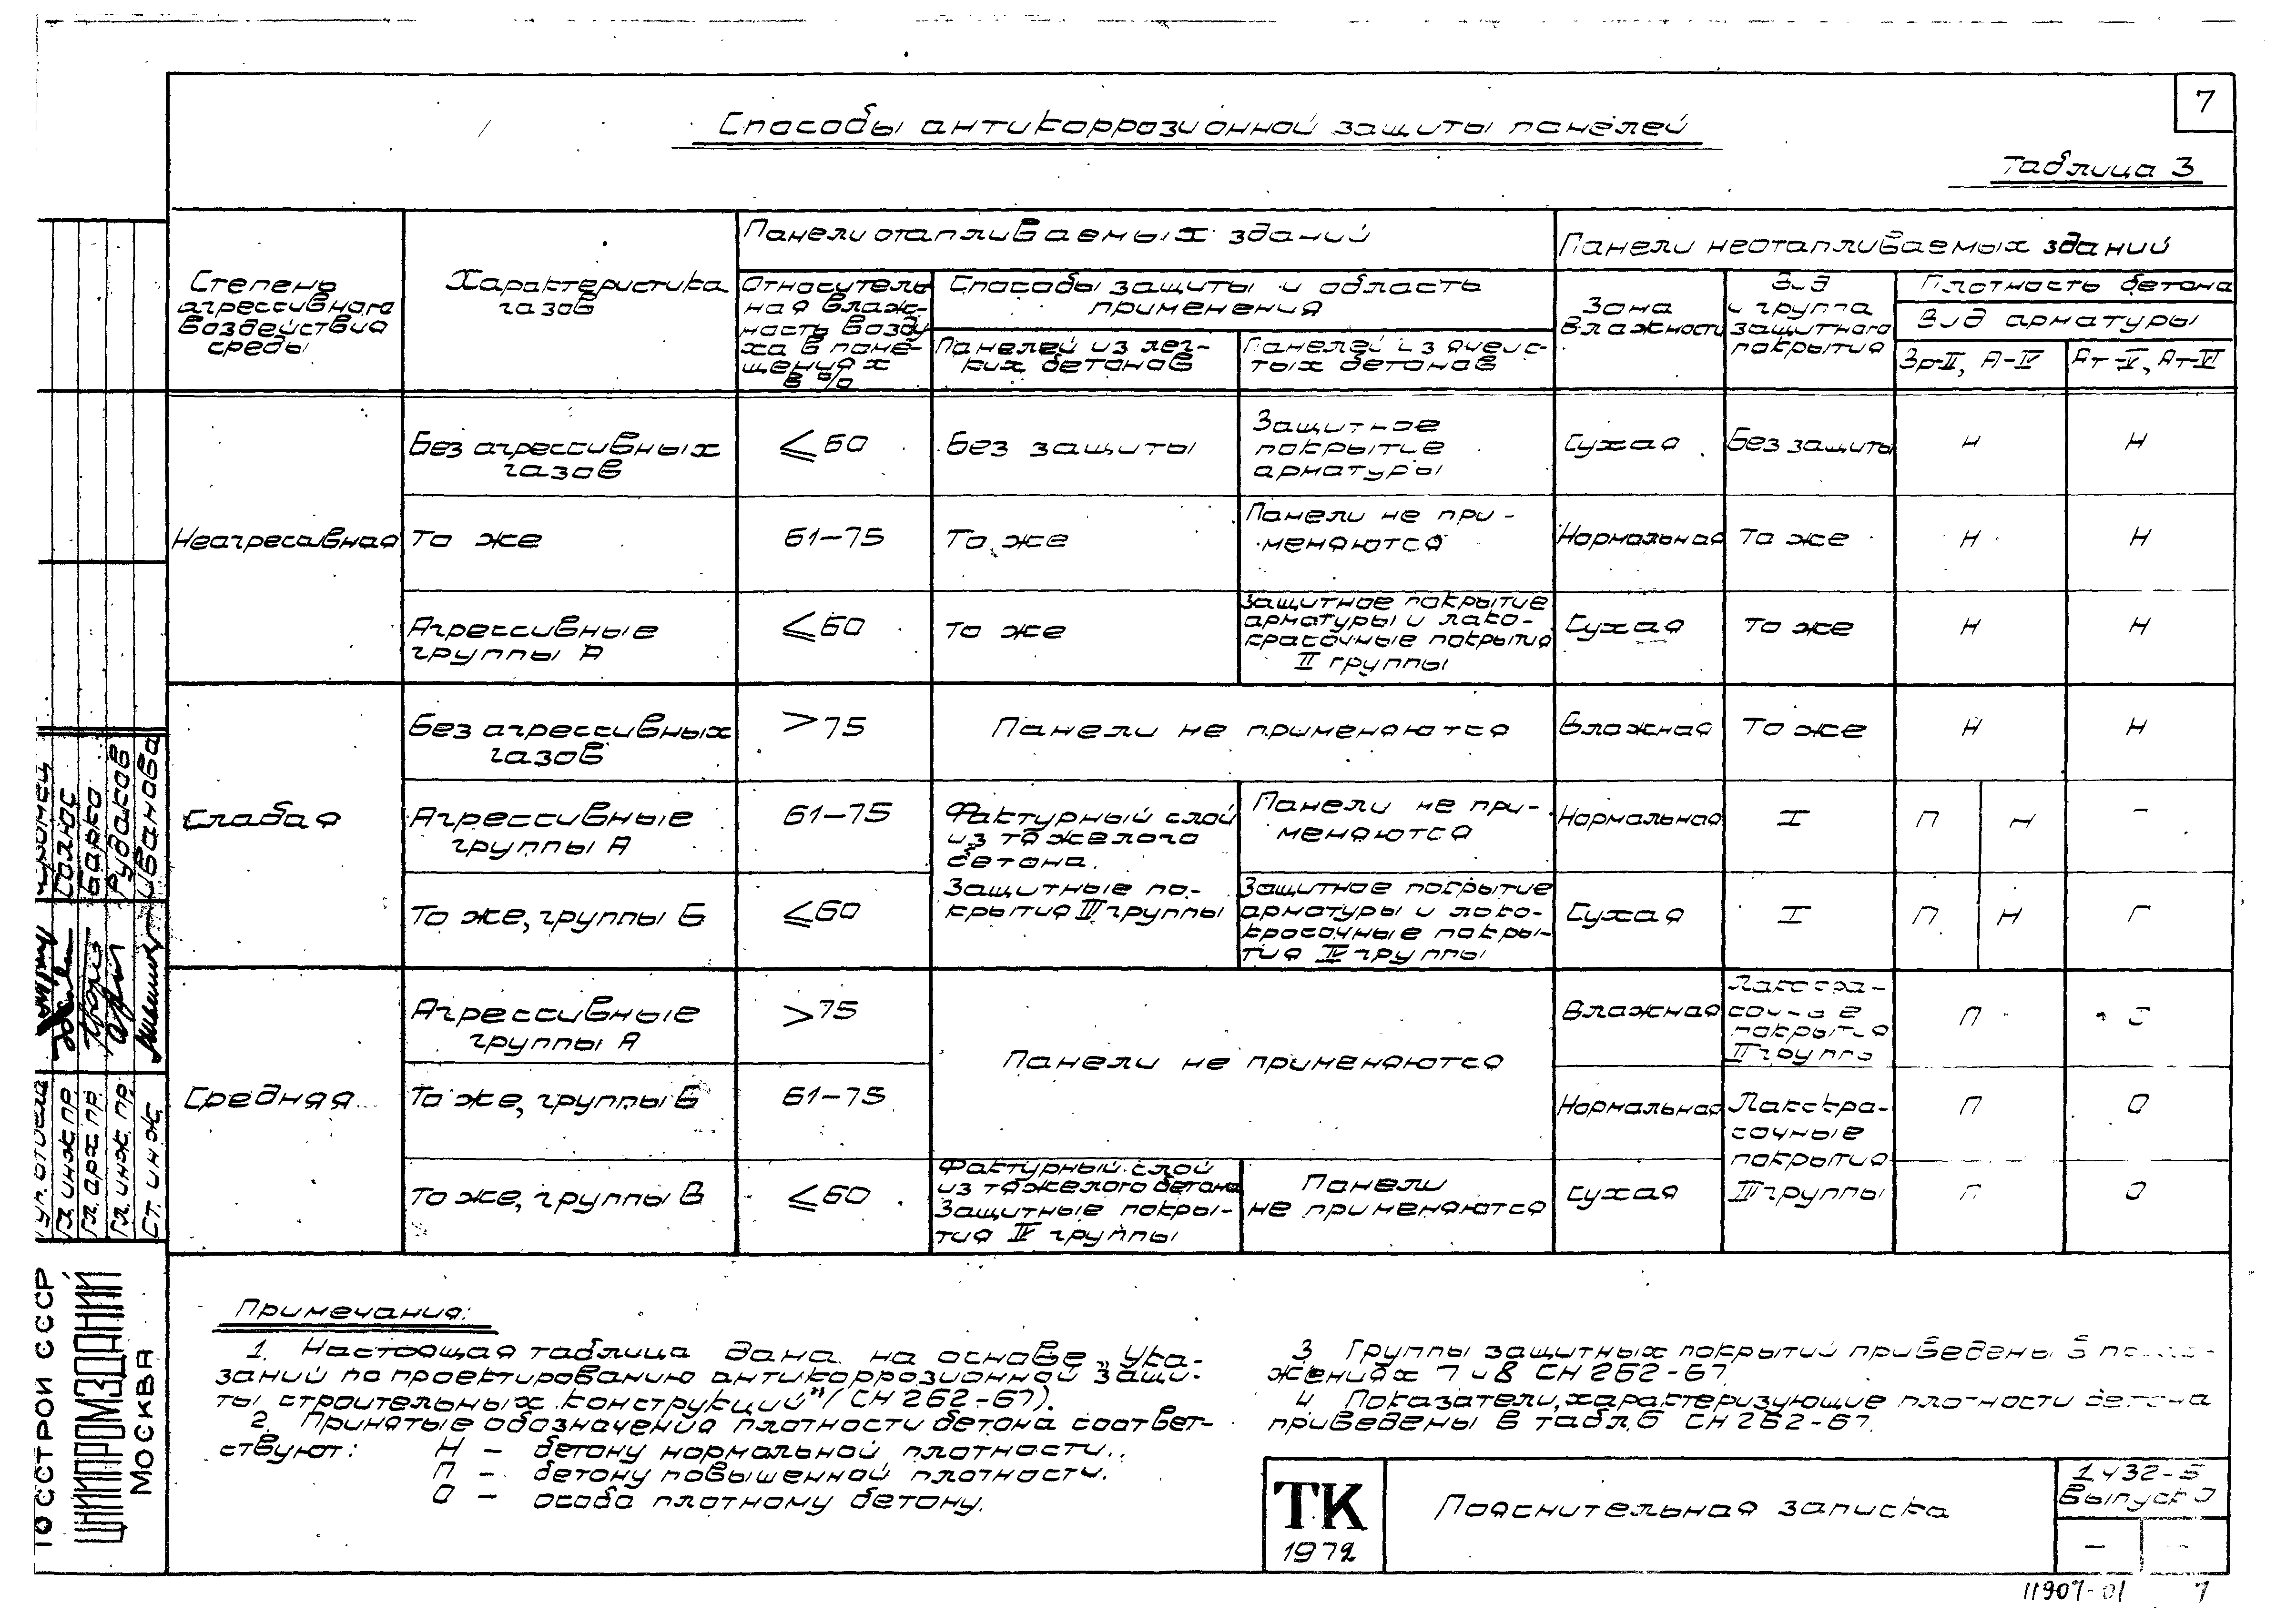 7
Способы антикоррозионной защиты панелей
Таблица 3
Степень
агрессивного
воздействия
среды
Характеристика
газов
Панели отапливаемых зданий
Относитель
ная влаж-
ность возду
ха в поме-
щениях
в %
Способы защиты и область
применения
Панелей из лег-
ких бетонов
Панелей из ячеис-
тых бетонов
Панели неотапливаемых зданий
Зона
влажности
Вид
и группа
защитного
покрытия
Плотность бетона
Вид арматуры
Вр-II, А-IV
Ат-V, Ат-VI
Неагресивная
Без агрессивных
газов
⩽60
Без защиты
Защитное
покрытие
арматуры
Сухая
Без защиты
Н
Н
То же
61-75
То же
Панели не при-
меняются
Нормальная
То же
Н
Н
Агрессивные
группы А
⩽60
То же
Защитное покрытие
арматуры и лако-
красочные покрытия
II группы
Сухая
То же
Н
Н
Слабая
Без агрессивных
газов
>75
Панели не применяются
Влажная
То же
Н
Н
Агрессивные
группы А
61-75
Фактурный слой
из тяжелого
бетона.
Защитные по-
крытия III группы
Панели не при-
меняются
Нормальная
I
П
Н
-
То же, группы Б
⩽60
Защитное покрытие
арматуры и лако-
красочные покры-
тия IV группы
Сухая
I
П
Н
Средняя
Агрессивные
группы А
>75
Панели не применяются
Влажная
покрытия
П
То же, группы Б
61-75
Нормальная
Лакокра-
сочные
покрытия
III группы
П
О
То же, группы В
⩽60
Фактурный слой
из тяжелого бетона
Защитные покры-
тия IV группы
Панели
не применяются
Сухая
П
О
Примечания:
1. Настоящая таблица дана на основе „Ука-
заний по проектированию антикоррозионной защи-
ты строительных конструкций" (СН 262-67).
2. Принятые обозначения плотности бетона соответ-
ствуют:
Н - бетону нормальной плотности.
П - бетону повышенной плотности.
О - особо плотному бетону.
3 Группы защитных покрытий приведены в
жениях 7 и 8 СН 262-67
4 Показатели, характеризующие плотности бетона
приведены в табл. 6 СН 262-67.
ТК
1972
Пояснительная записка
1 432-5
Выпуск 0
-
11907-01
7
Солюс
Барко
Рудаков
Иванова
Гл. инж пр.
Гл. арх пр.
Гл. инж. пр.
Ст. инж.
ГОССТРОЙ СССР
ЦНИИПРОМЗДАНИЙ
МОСКВА